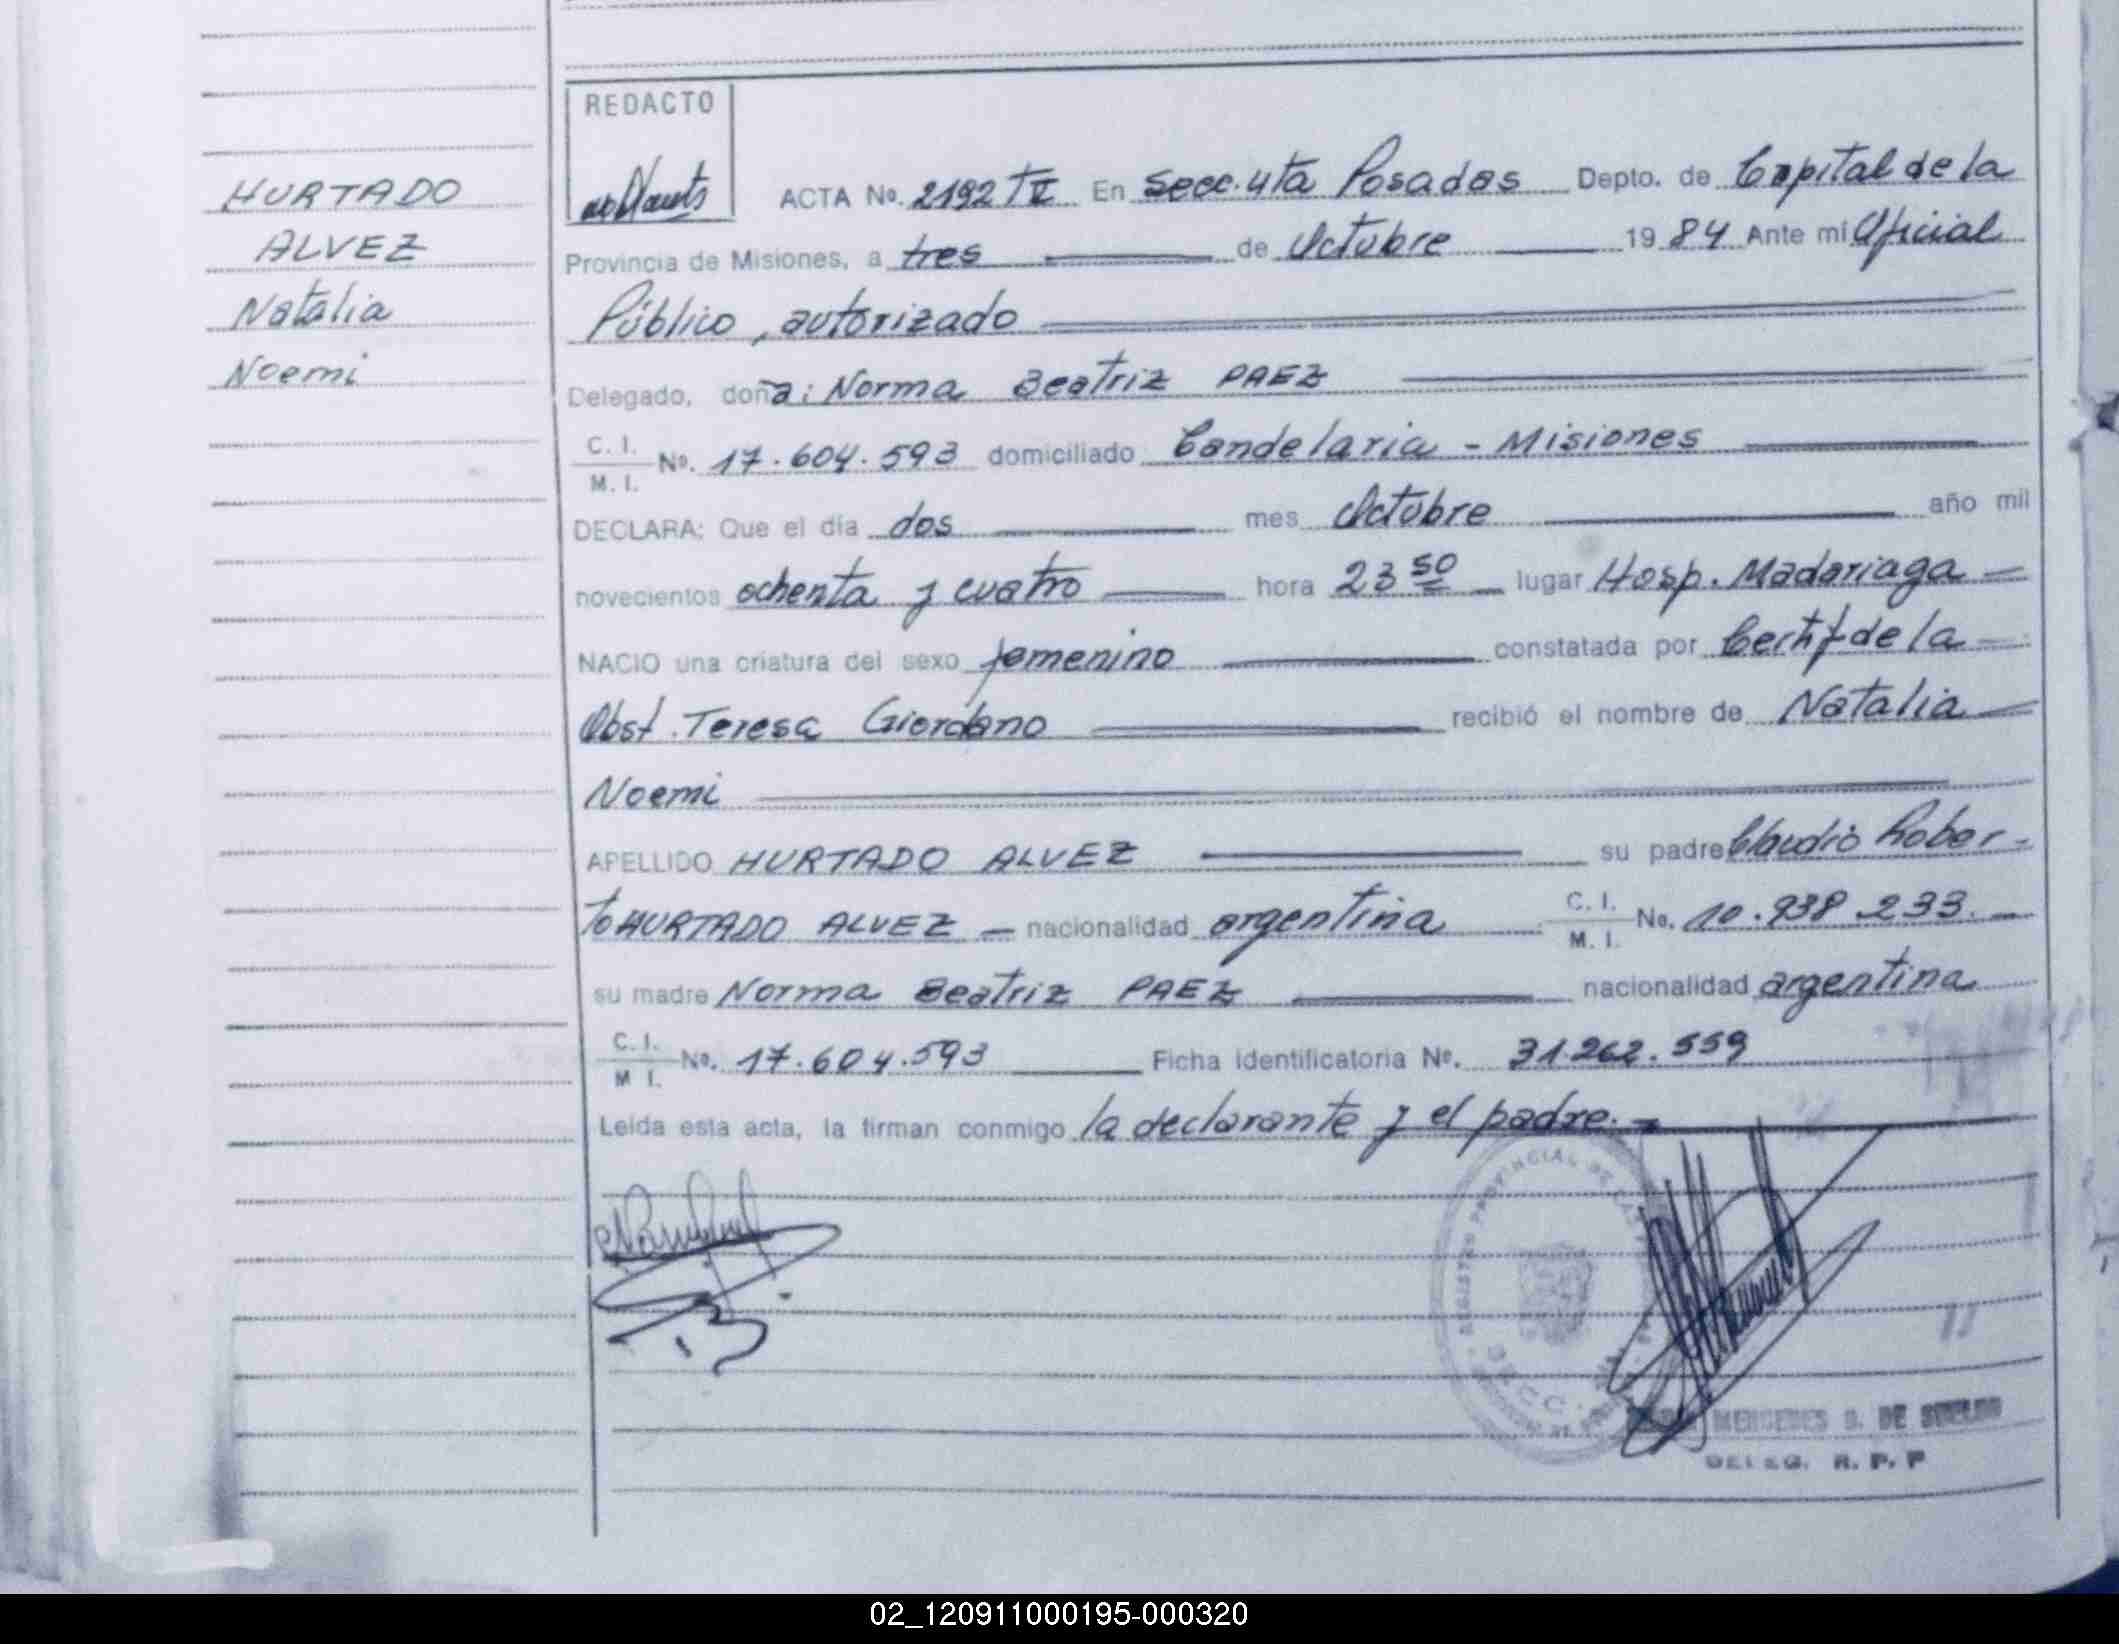 HURTADO
ALVEZ
Natalia
Noemi
REDACTO
ACTA No. 2192 TV En Secc. 4ta Posadas Depto. de Capital de la
Provincia de Misiones, a tres de Octubre 1984 Ante mi Oficial
Público, autorizado
Delegado, doña: Norma Beatriz PAEZ
C. I.
M. I. No. 17.604.593 domiciliado Candelaria - Misiones
DECLARA: Que el día dos mes Octubre año mil
novecientos ochenta y cuatro hora 23 50 lugar Hosp. Madariaga
NACIO una criatura del sexo femenino constatada por Certif de la
Obst. Teresa Giordano recibió el nombre de Natalia
Noemi
APELLIDO HURTADO ALVEZ su padre Claudio Rober-
to HURTADO ALVEZ nacionalidad argentina C. I. M. I. No. 10.938.233.
su madre Norma Beatriz PAEZ nacionalidad argentina
C. I. M I. No. 17.604.593 Ficha identificatoria No. 31.262.559
Leida esta acta, la firman conmigo la declarante y el padre.
REGISTRO PROVINCIAL DE LAS
MERCEDES S. DE SUELDO
DELEG. R. P. P
02_120911000195-000320